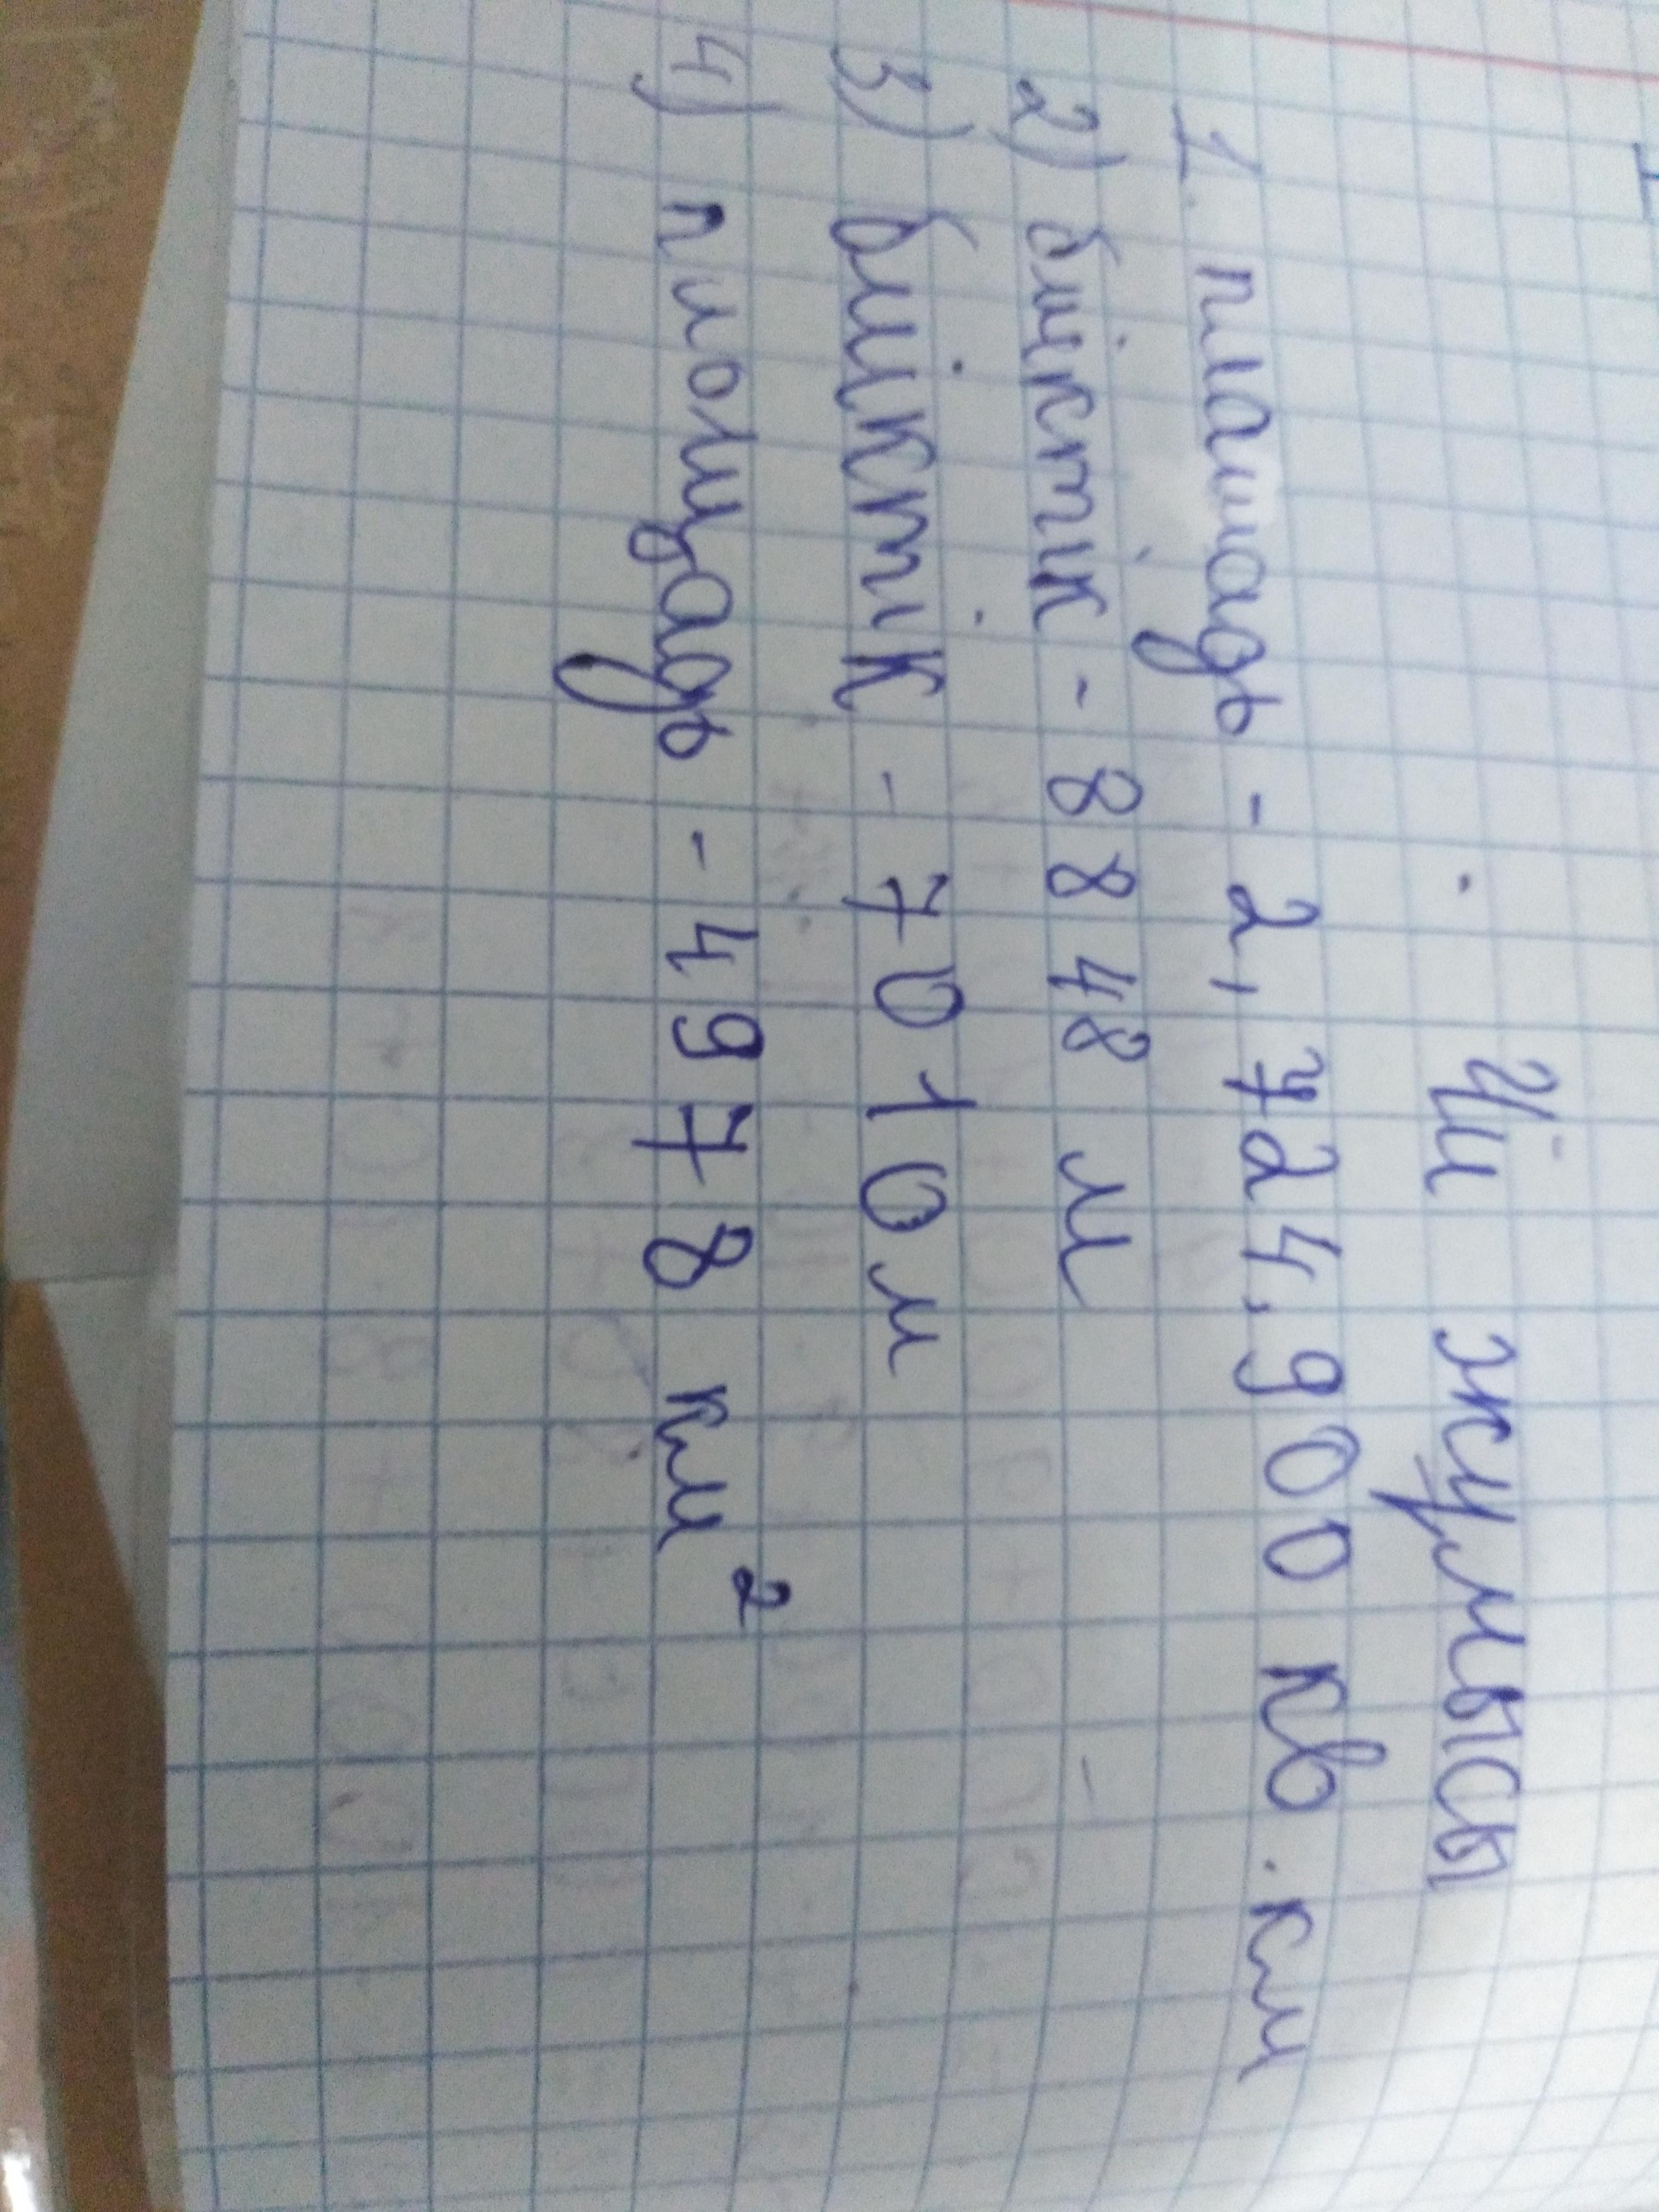 Үй жұмысы
1. площадь - 2,724,900 кв. км
2) биіктік - 8848 м
3) биіктік - 7010м
4) площадь - 49978 км²